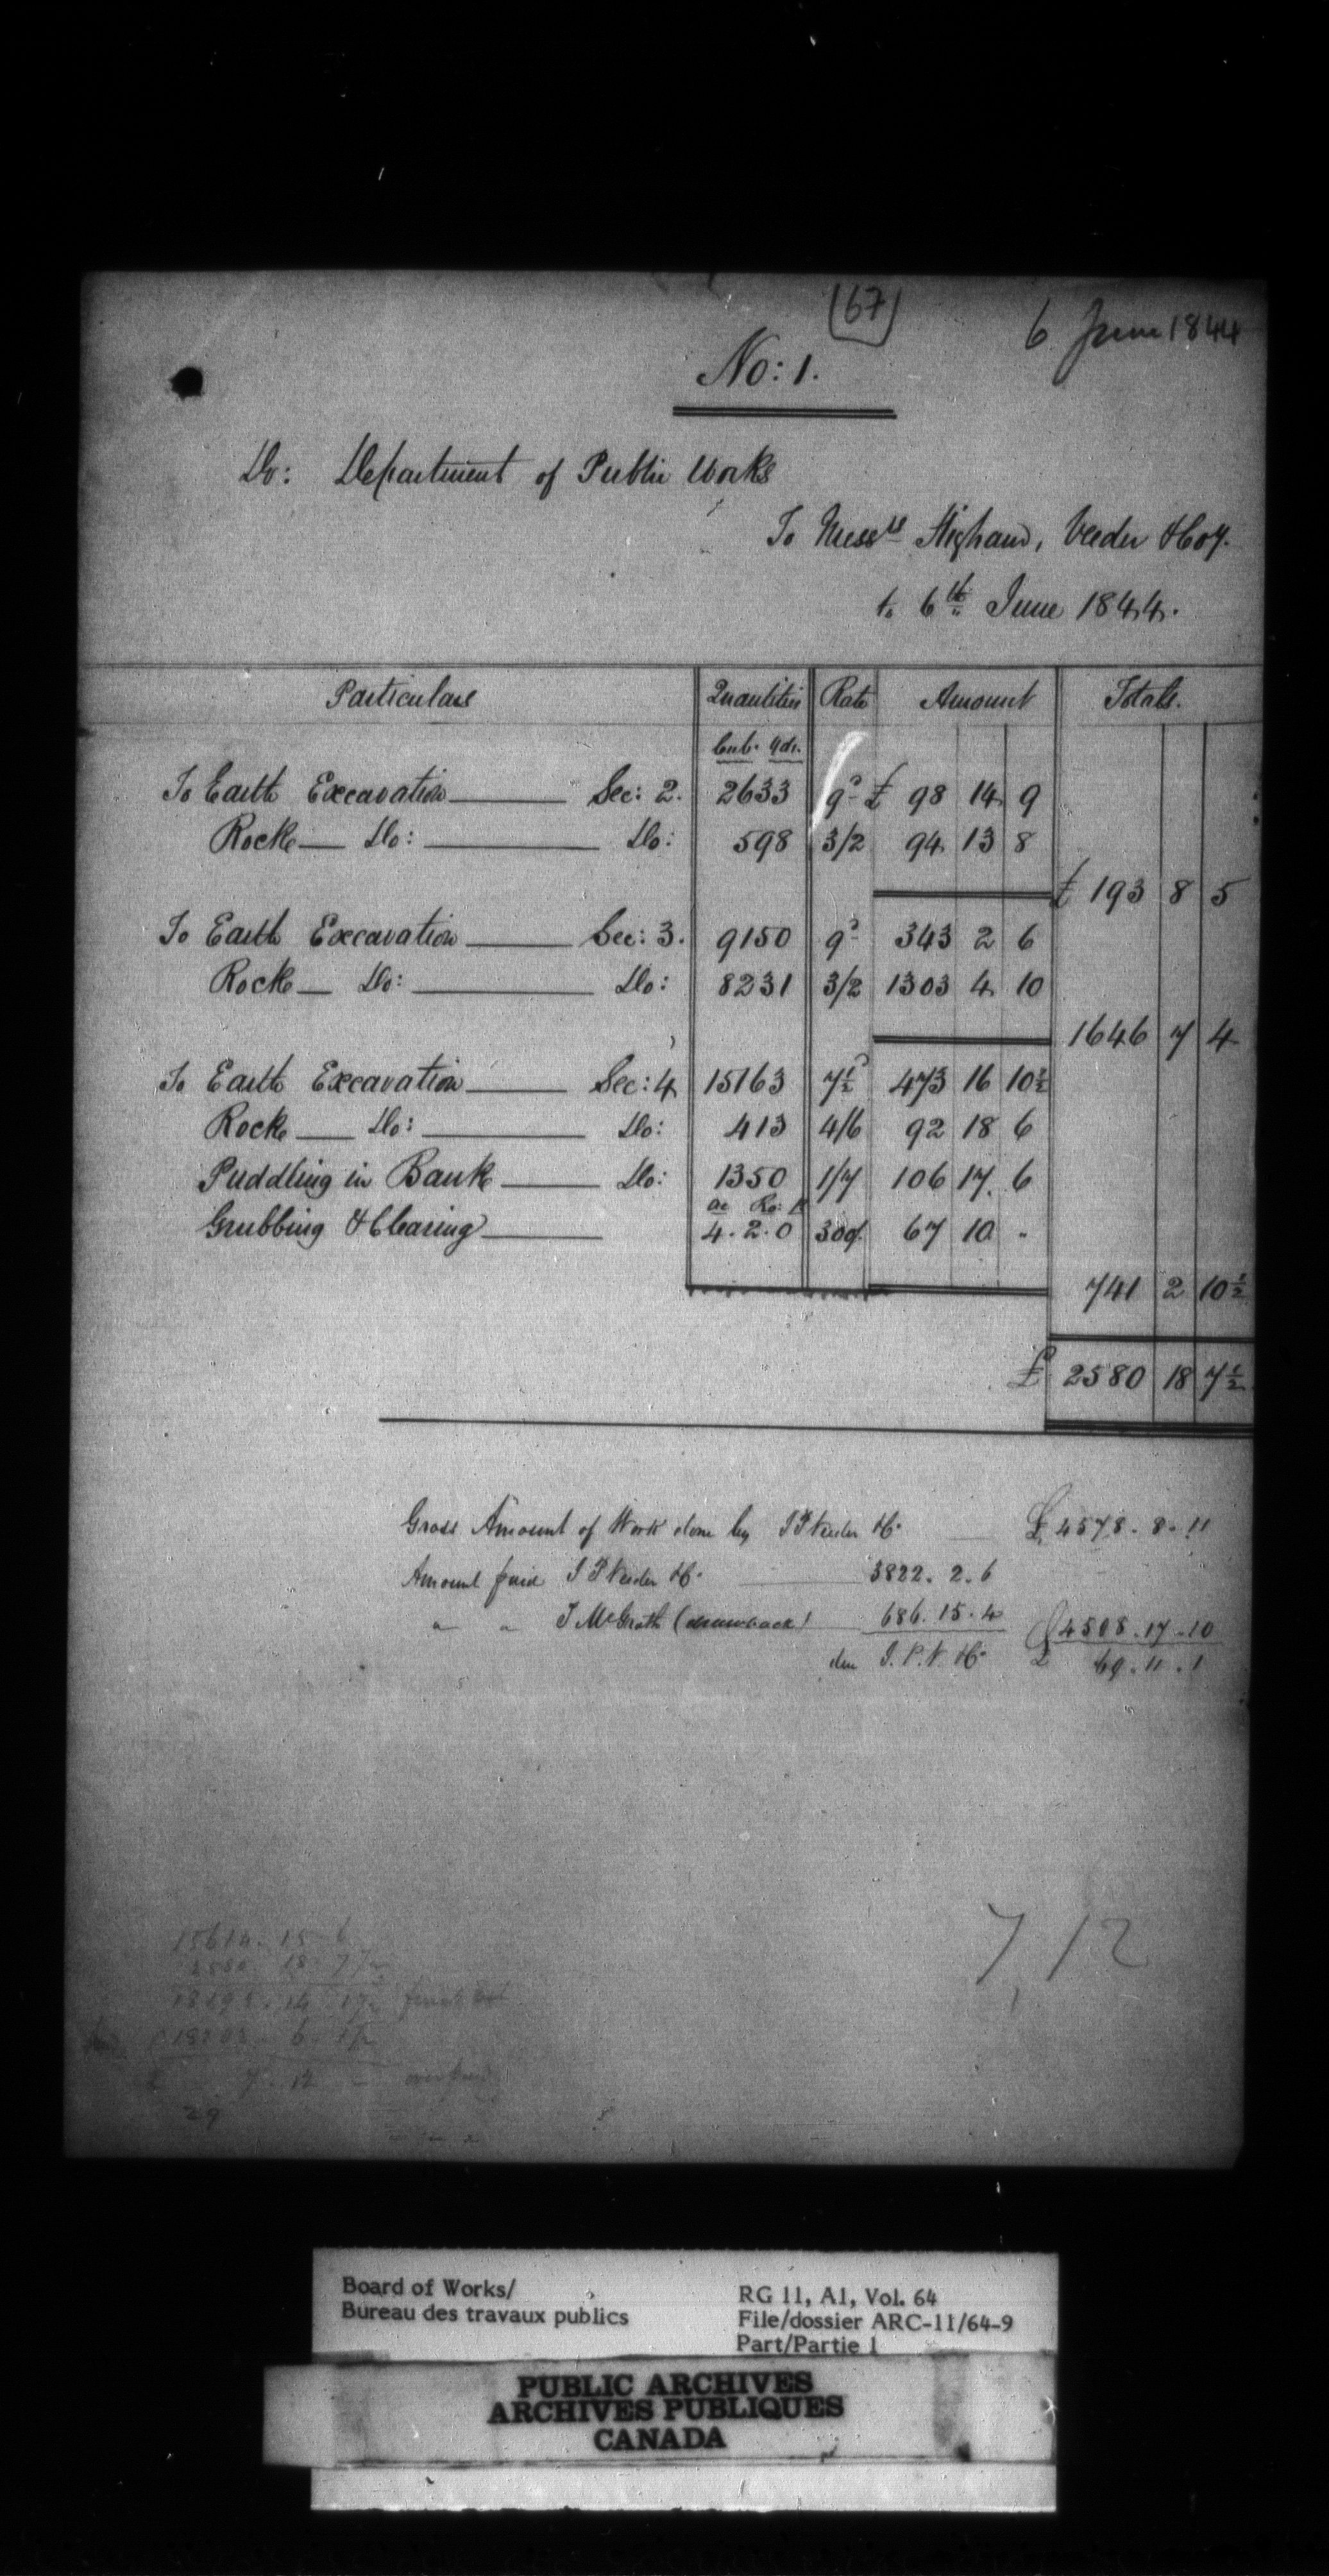 (67)
6 June 1844
No: 1.
Dr: Department of Public Works
To Messrs Higham, Veeder & Coy.
to 6th June 1844.
Particulars Quantities Rate Amount Totals.
Cub. Yds.
To Earth Excavation Sec: 2. 2633 9d £ 98 14 9
Rock Do: Do: 598 3/2 94 13 8
£ 193 8 5
To Earth Excavation Sec: 3. 9150 9d 343 2 6
Rock Do: Do: 8231 3/2 1303 4 10
1646 7 4
To Earth Excavation Sec: 4 15163 7½d 473 16 10½
Rock Do: Do: 413 4/6 92 18 6
Puddling in Bank Do: 1350 1/7 106 17 6
ac Ro: P
Grubbing & Clearing 4.2.0 300/ 67 10 "
741 2 10½
£ 2580 18 7½
Gross Amount of Work done by J P Veeder & Co £ 4578.8.11
Amount paid J P Veeder & Co 3822.2.6
" " J McGrath (drawback) 686.15.4 £ 4508.17.10
due J.P.V. & Co £ 69.11.1
7/12
15614.15.6
2580.18.7½
18195.14.1½
18203.6.1½
£ 7.12 – overpaid
29
Board of Works/
Bureau des travaux publics
RG 11, A1, Vol. 64
File/dossier ARC-11/64-9
Part/Partie 1
PUBLIC ARCHIVES
ARCHIVES PUBLIQUES
CANADA